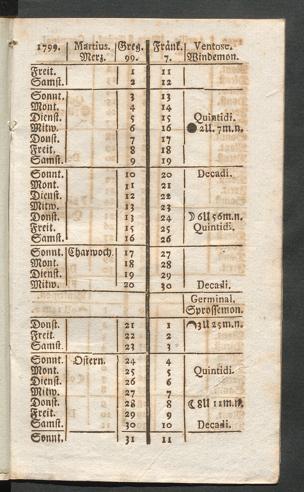 1799. Martius. Greg. Fränk. Ventose.
Merz. 99. 7. Windemon.
Freit. 1 11
Samst. 2 12
Sonnt. 3 13
Mont. 4 14
Dienst. 5 15 Quintidi.
Mitw. 6 16 ● 2U. 7m.n.
Donst. 7 17
Freit. 8 18
Samst. 9 19
Sonnt. 10 20 Decadi.
Mont. 11 21
Dienst. 12 22
Mitw. 13 23
Donst. 13 24 ☽ 6U 56m.n.
Freit. 15 25 Quintidi.
Samst. 16 26
Sonnt. Charwoch. 17 27
Mont. 18 28
Dienst. 19 29
Mitw. 20 30 Decadi.
Germinal.
Sprossemon.
Donst. 21 1 3U 25m.n.
Freit. 22 2
Samst. 23 3
Sonnt. Ostern. 24 4
Mont. 25 5 Quintidi.
Dienst. 26 6
Mitw. 27 7
Donst. 28 8 ☾ 8U 11m.n.
Freit. 29 9
Samst. 30 10 Decadi.
Sonnt. 31 11